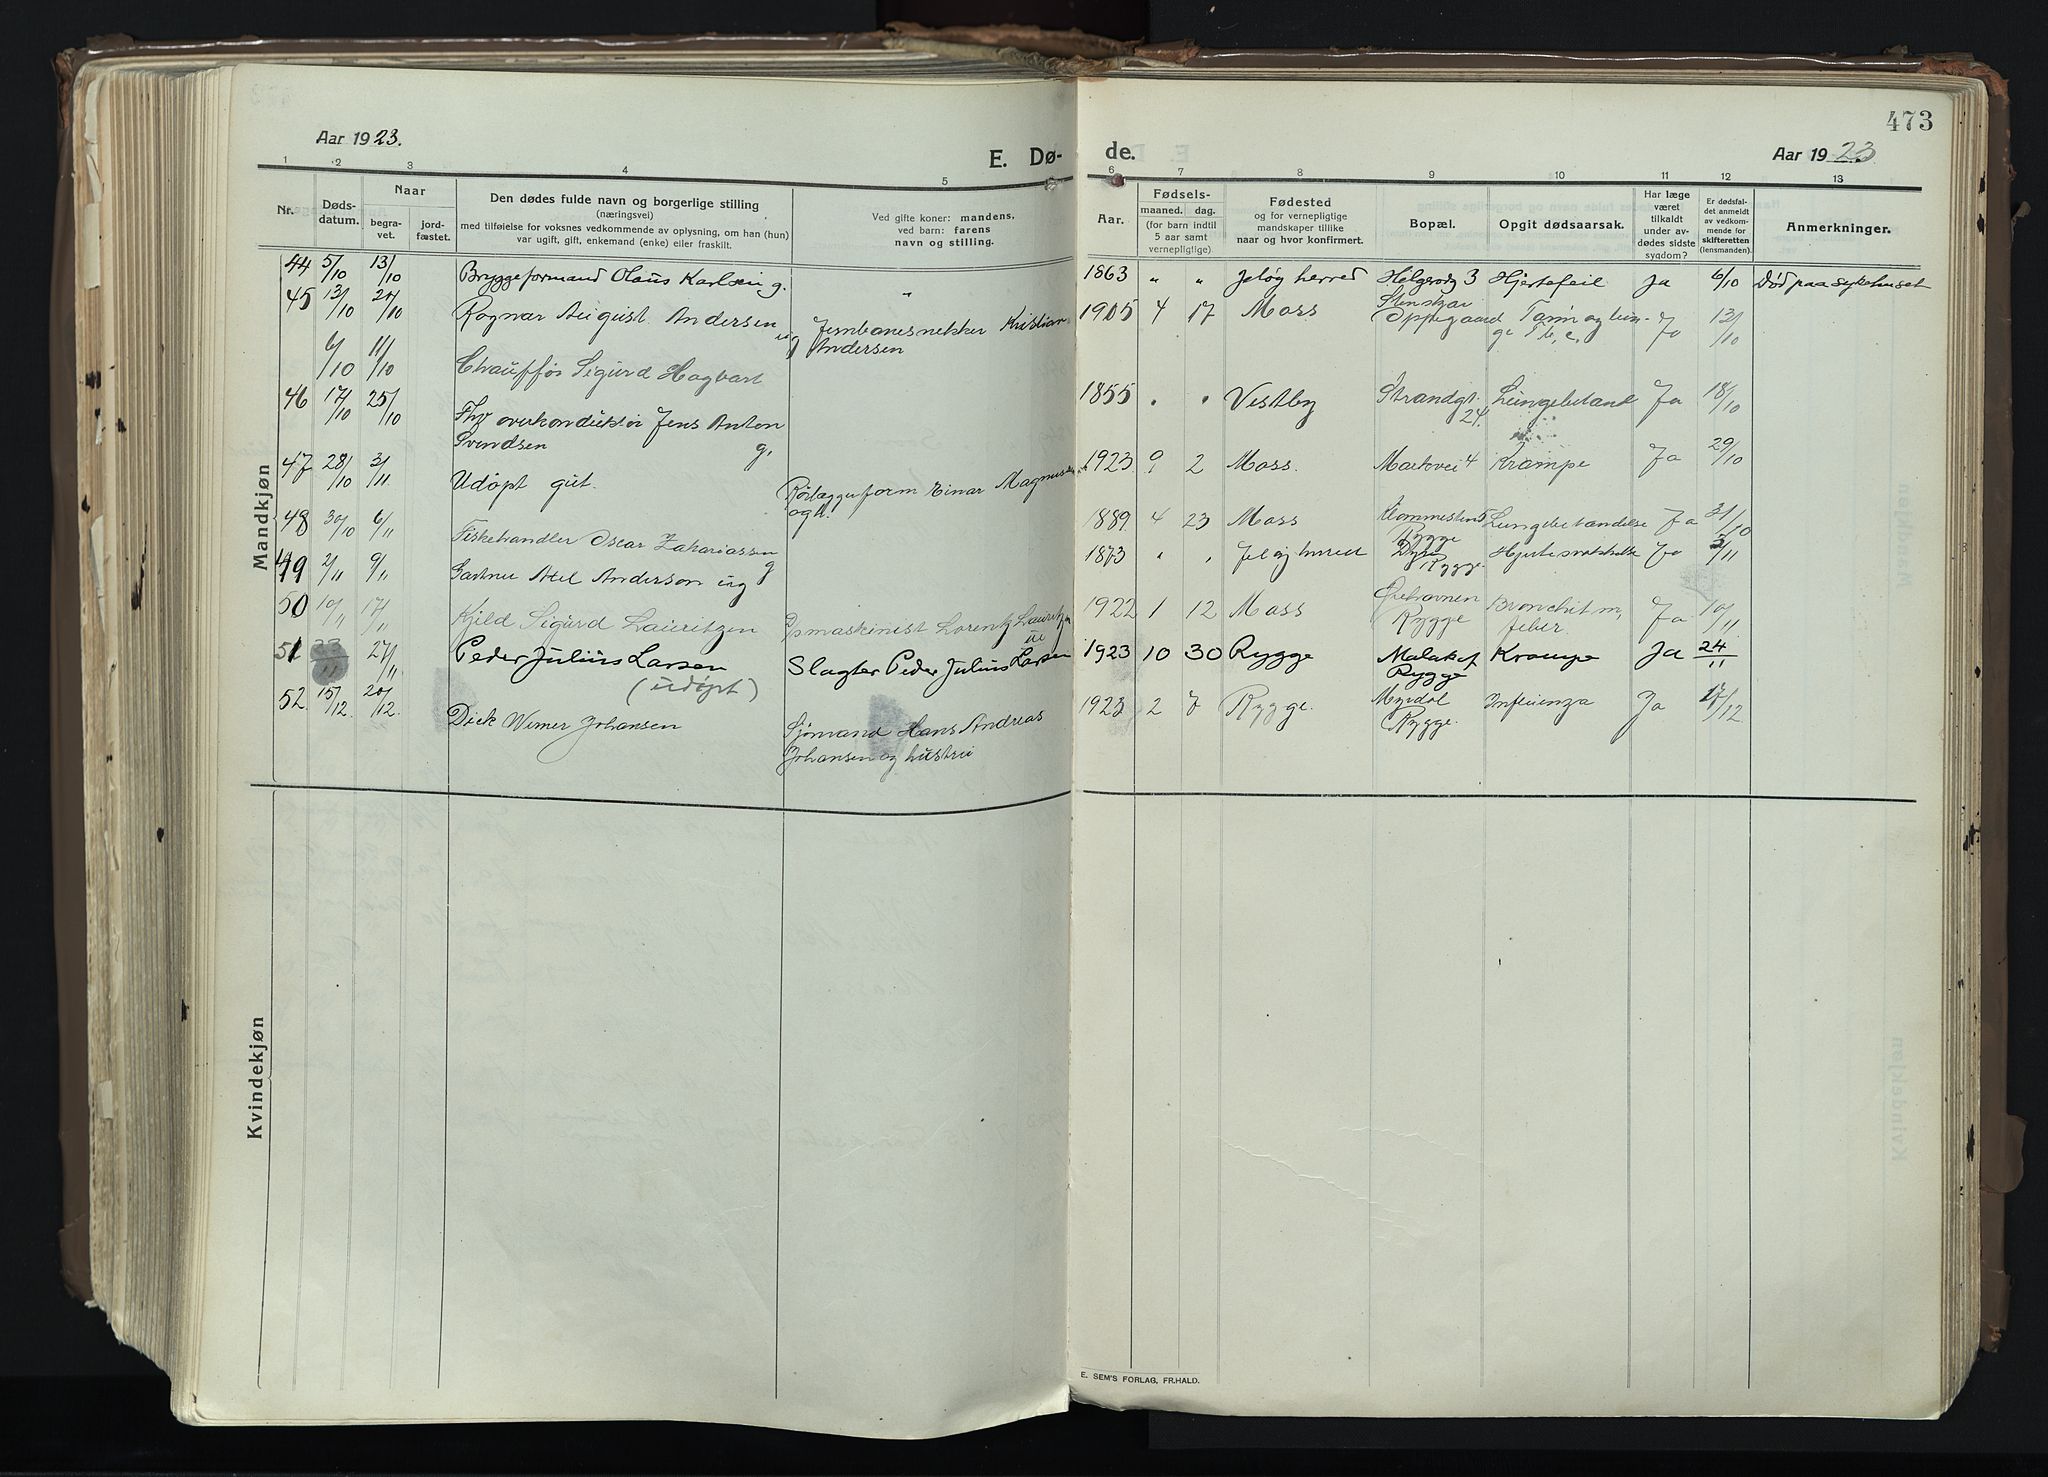 473
Aar 1923.
E. Dø-
de.
Aar 1923
1 2 3 4 5 6 7 8 9 10 11 12 13
Nr.
Døds-
datum.
Naar
begra-
vet.
jord-
fæstet.
Den dødes fulde navn og borgerlige stilling
(næringsvei)
med tilføielse for voksnes vedkommende av oplysning, om han (hun)
var ugift, gift, enkemand (enke) eller fraskilt.
Ved gifte koner: mandens,
ved barn: farens
navn og stilling.
Aar.
Fødsels-
maaned. dag.
(for barn indtil
5 aar samt
vernepligtige)
Fødested
og for vernepligtige
mandskaper tillike
naar og hvor konfirmert.
Bopæl.
Opgit dødsaarsak.
Har læge
været
tilkaldt
under av-
dødes sidste
sygdom?
Er dødsfal-
det anmeldt
av vedkom-
mende for
skifteretten
(lensmanden).
Anmerkninger.
Mandkjøn
44 5/10 13/10 Bryggeformand Olaus Karlsen g. " 1863 " " Jeløy herred Helgerødg 3 Hjertefeil Ja 6/10 Død paa sykehuset
45 13/10 20/10 Ragnar August Andersen ug Jernbanesnekker Kristian
Andersen
1905 4 17 Moss Oppegaard Ja 13/10
6/10 11/10 Chauffør Sigurd Hagbart
46 17/10 25/10 Fhv overkonduktør Jens Anton
Svendsen g.
1855 " " Vestby Strandgt.
24.
Lungebetænd Ja 18/10
47 28/10 3/11 Udøpt gut. Einar Magnussen
1923 9 2 Moss. Markvei 4 Krampe Ja 29/10
48 30/10 6/11 Fiskehandler Oscar Zakariassen
g
1889 4 23 Moss Klommesten 5
Rygge
Lungebetændelse Ja 31/10
49 2/11 9/11 Gartner Axel Anderson ug 1873 " " Jeløy herred
Rygge
Hjertesvakhet Ja 3/11
50 10/11 17/11 Kjeld Sigurd Lauritzen Dpmaskinist Lorentz Lauritzen
1922 1 12 Moss Ørehavnen
Rygge
Bronchit m,
feber.
Ja 10/11
51 23/11 27/11 Peder Julius Larsen
(udøpt)
Slagter Peder Julius Larsen 1923 10 30 Rygge Malakof
Rygge
Krampe Ja 24/11
52. 15/12 20/12. Dick Werner Johansen Sjømand Hans Andreas
Johansen og hustru
1923 2 7 Rygge. Myrdal
Rygge.
Influenza Ja 17/12
Kvindekjøn
E. SEM'S FORLAG, FR.HALD.